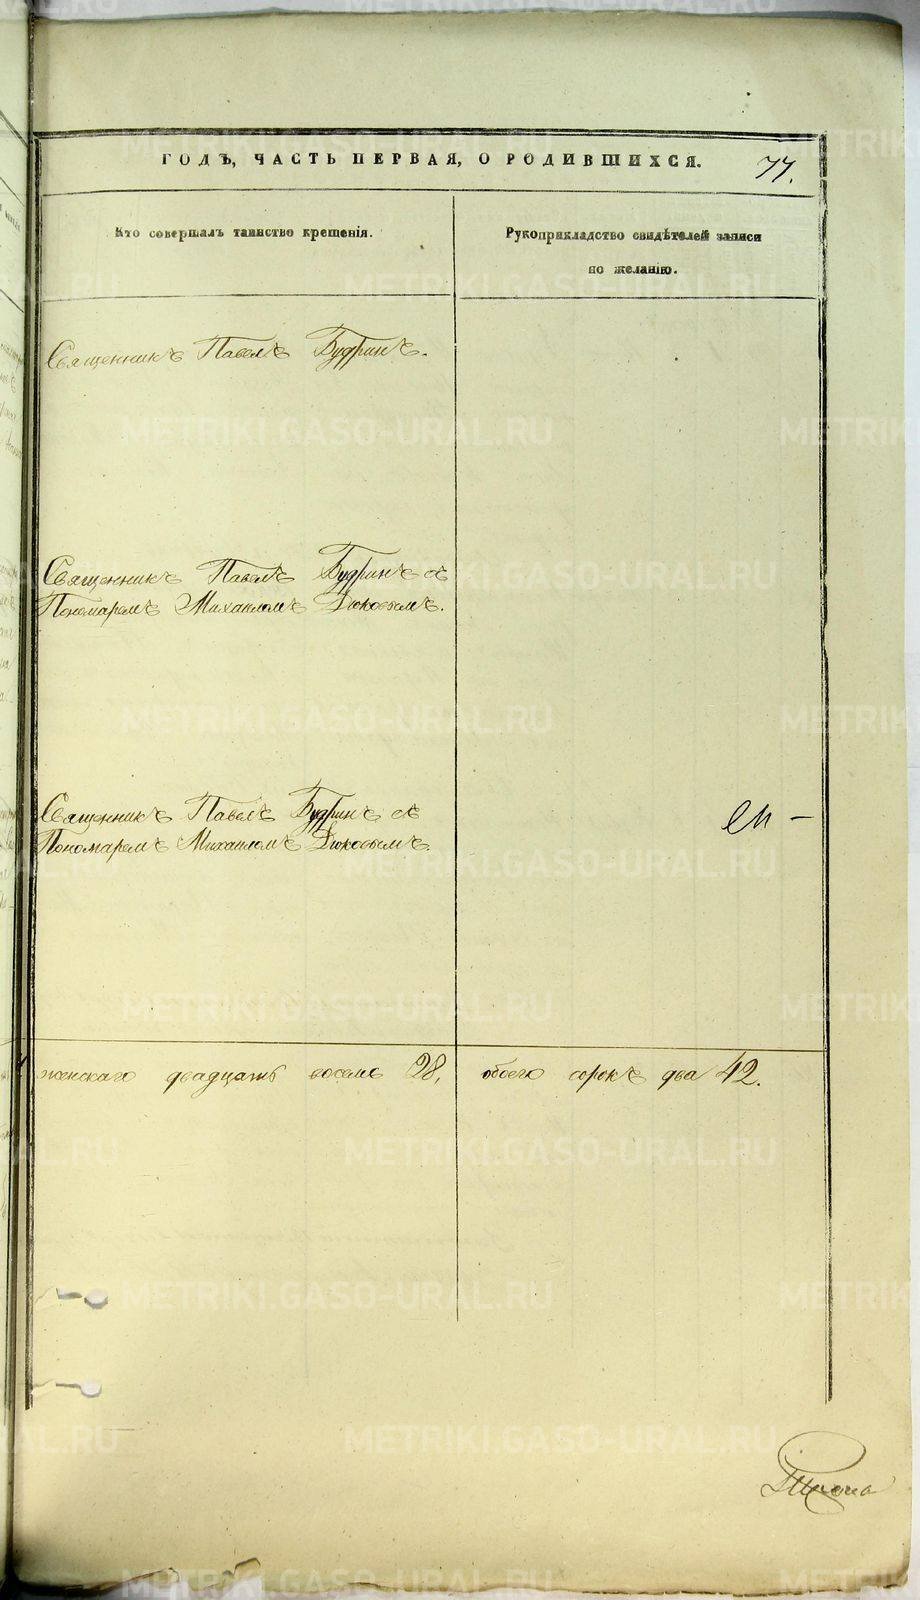 ГОДЪ, ЧАСТЬ ПЕРВАЯ, О РОДИВШИХСЯ. 77.
Кто совершалъ таинство крещенія.
Рукоприкладство свидѣтелей записи
по желанію.
Священникъ Павелъ Будринъ.
Священникъ Павелъ Будринъ съ
Пономаремъ Михаиломъ Дюковымъ.
Священникъ Павелъ Будринъ съ
Пономаремъ Михаиломъ Дюковымъ.
женскаго двадцать восемь 28, обоего сорокъ два 42.
METRIKI.GASO-URAL.RU